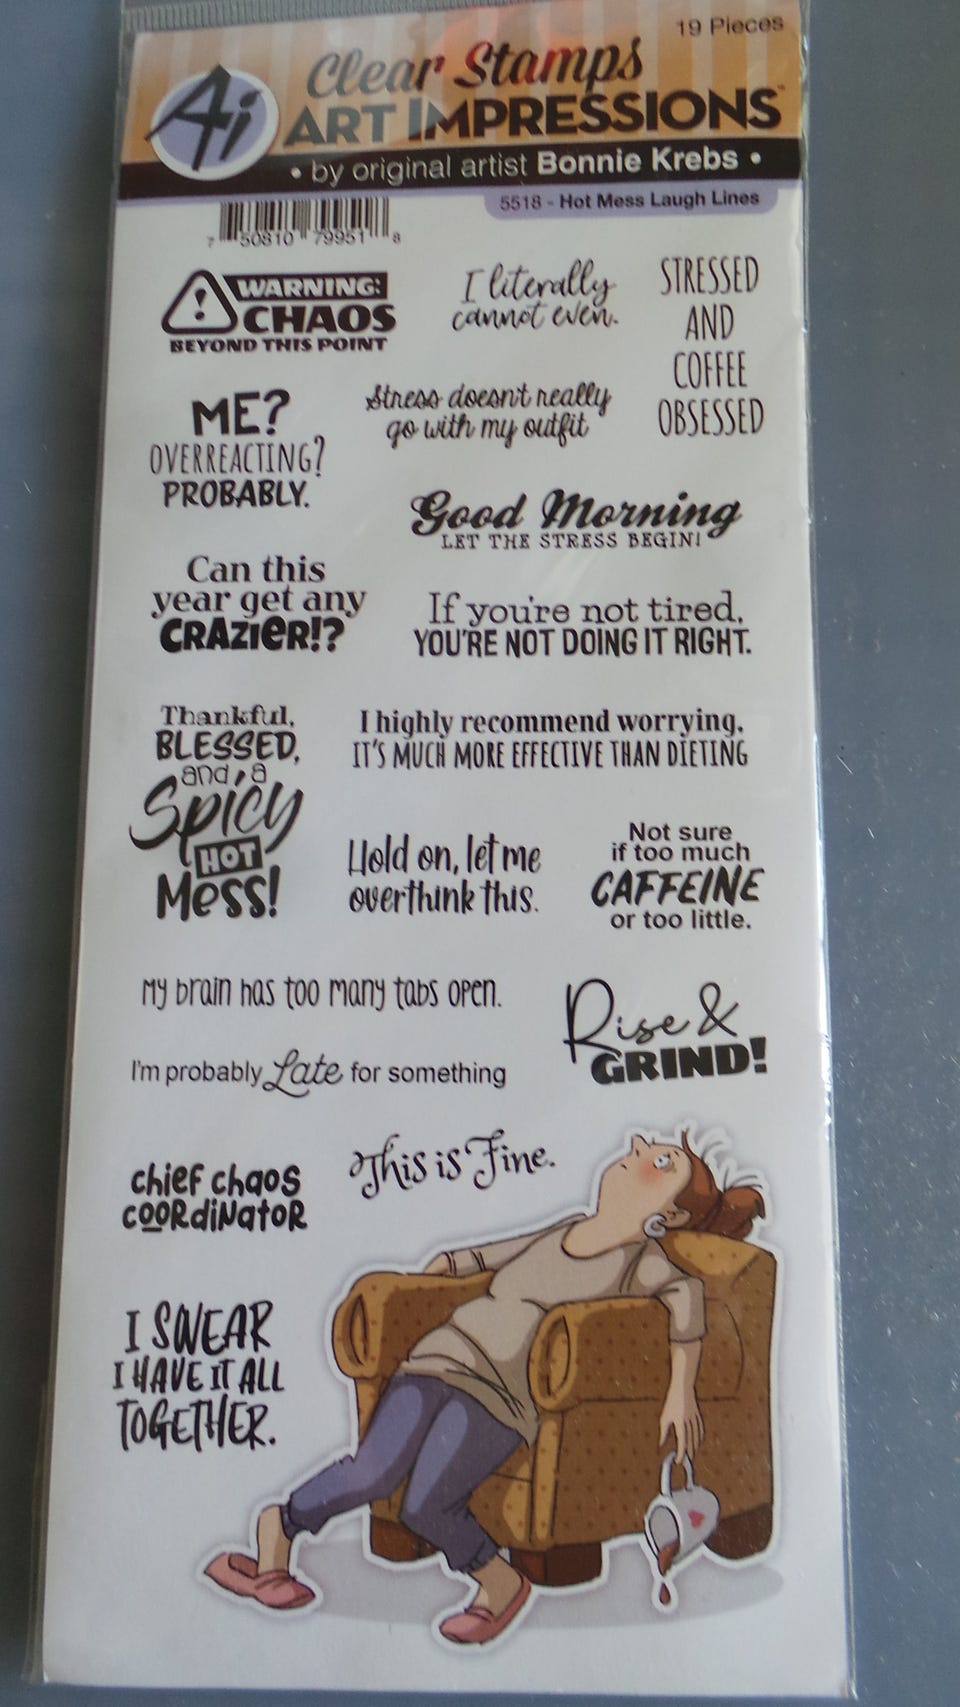 19 Pieces
Clear Stamps
Ai
ART IMPRESSIONS
• by original artist Bonnie Krebs •
5518 - Hot Mess Laugh Lines
7 50810 79951 8
WARNING:
CHAOS
BEYOND THIS POINT
I literally
cannot even.
STRESSED
AND
COFFEE
OBSESSED
ME?
OVERREACTING?
PROBABLY.
Stress doesn't really
go with my outfit
Good Morning
LET THE STRESS BEGIN!
Can this
year get any
CRAZIER!?
If you're not tired,
YOU'RE NOT DOING IT RIGHT.
Thankful,
BLESSED,
and, a
Spicy
HOT
Mess!
I highly recommend worrying,
IT'S MUCH MORE EFFECTIVE THAN DIETING
Hold on, let me
overthink this.
Not sure
if too much
CAFFEINE
or too little.
My brain has too many tabs open.
Rise &
GRIND!
I'm probably Late for something
chief chaos
cooRdiNatoR
This is Fine.
I SWEAR
I HAVE IT ALL
TOGETHER.